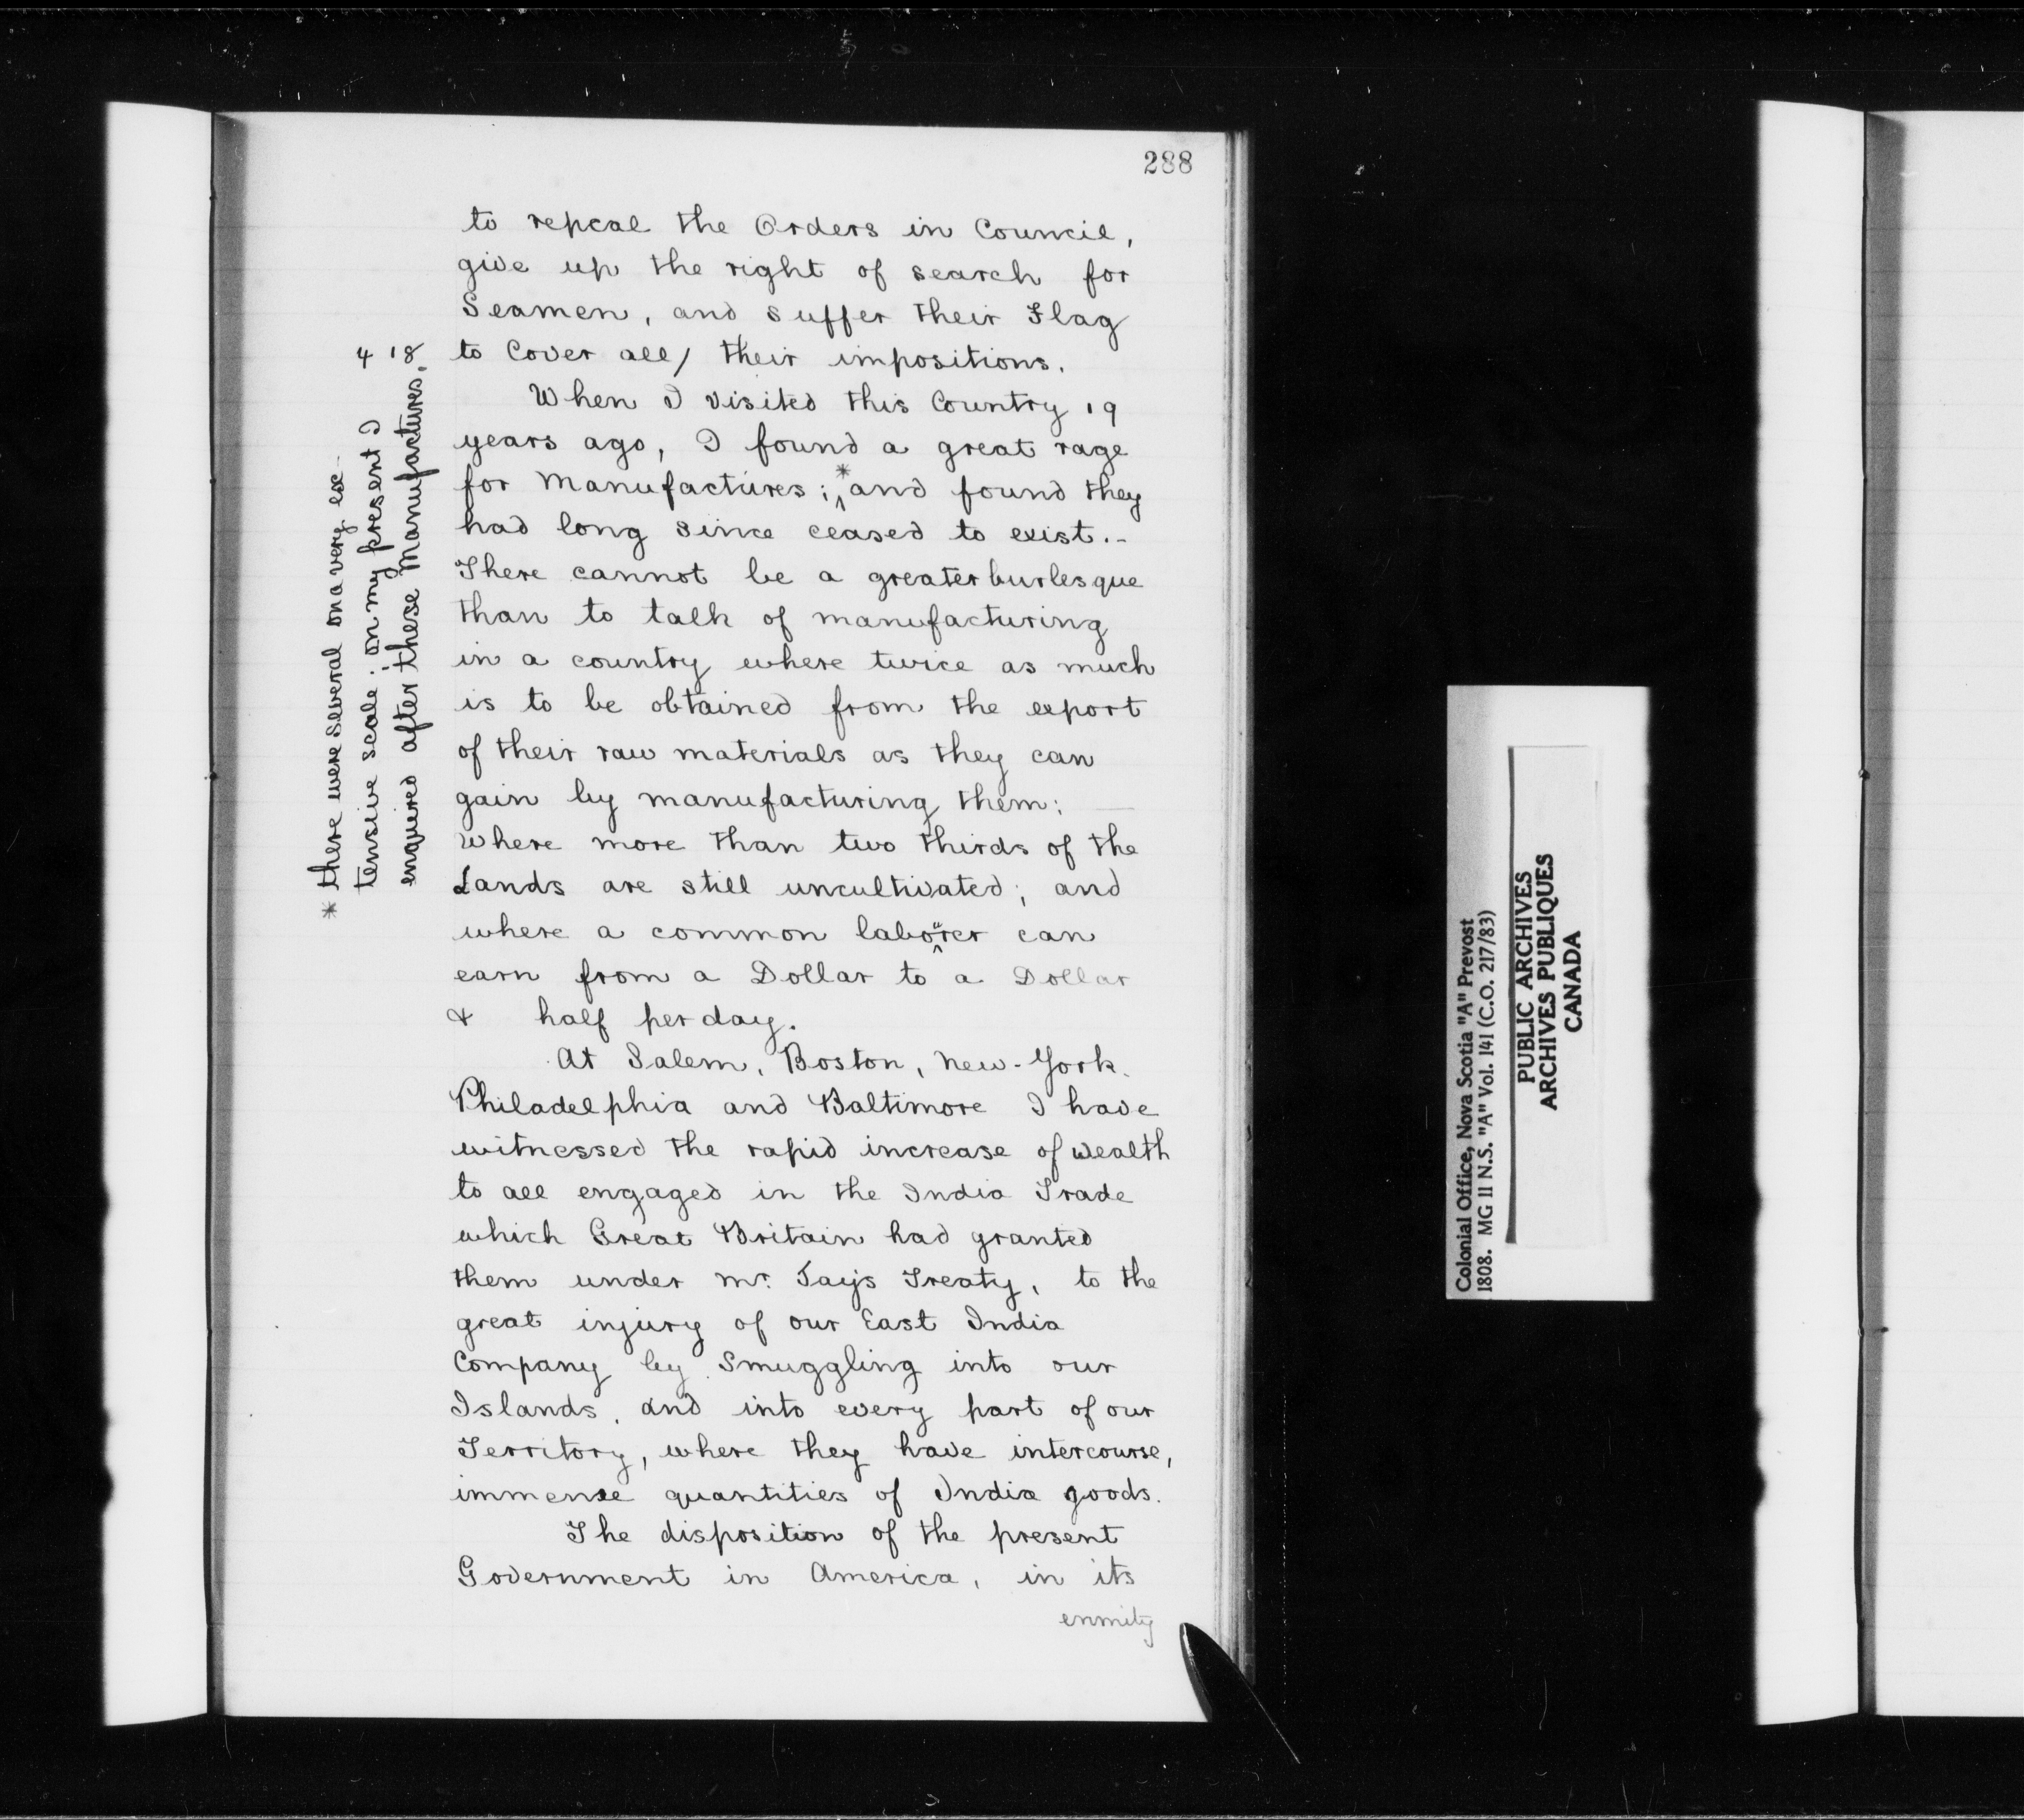 288
to repeal the Orders in Council,
give up the right of search for
Seamen, and suffer their Flag
4 18
to Cover all/ their impositions.
When I visited this Country 19
years ago, I found a great rage
for Manufactures;* and found they
had long since ceased to exist.-
There cannot be a greater burlesque
than to talk of manufacturing
in a country where twice as much
is to be obtained from the export
of their raw materials as they can
gain by manufacturing them:
where more than two thirds of the
Lands are still uncultivated; and
where a common labourer can
earn from a Dollar to a Dollar
& half per day.
At Salem, Boston, New-York.
Philadelphia and Baltimore I have
witnessed the rapid increase of wealth
to all engaged in the India Trade
which Great Britain had granted
them under Mr. Jay's Treaty, to the
great injury of our East India
Company by Smuggling into our
Islands, and into every part of our
Territory, where they have intercourse,
immense quantities of India goods.
The disposition of the present
Government in America, in its
enmity
* there were several on a very ex-
tensive scale: on my present I
enquired after these Manufactures.
Colonial Office, Nova Scotia "A" Prevost
1808. MG 11 N.S. "A" Vol. 141 (C.O. 217/83)
PUBLIC ARCHIVES
ARCHIVES PUBLIQUES
CANADA